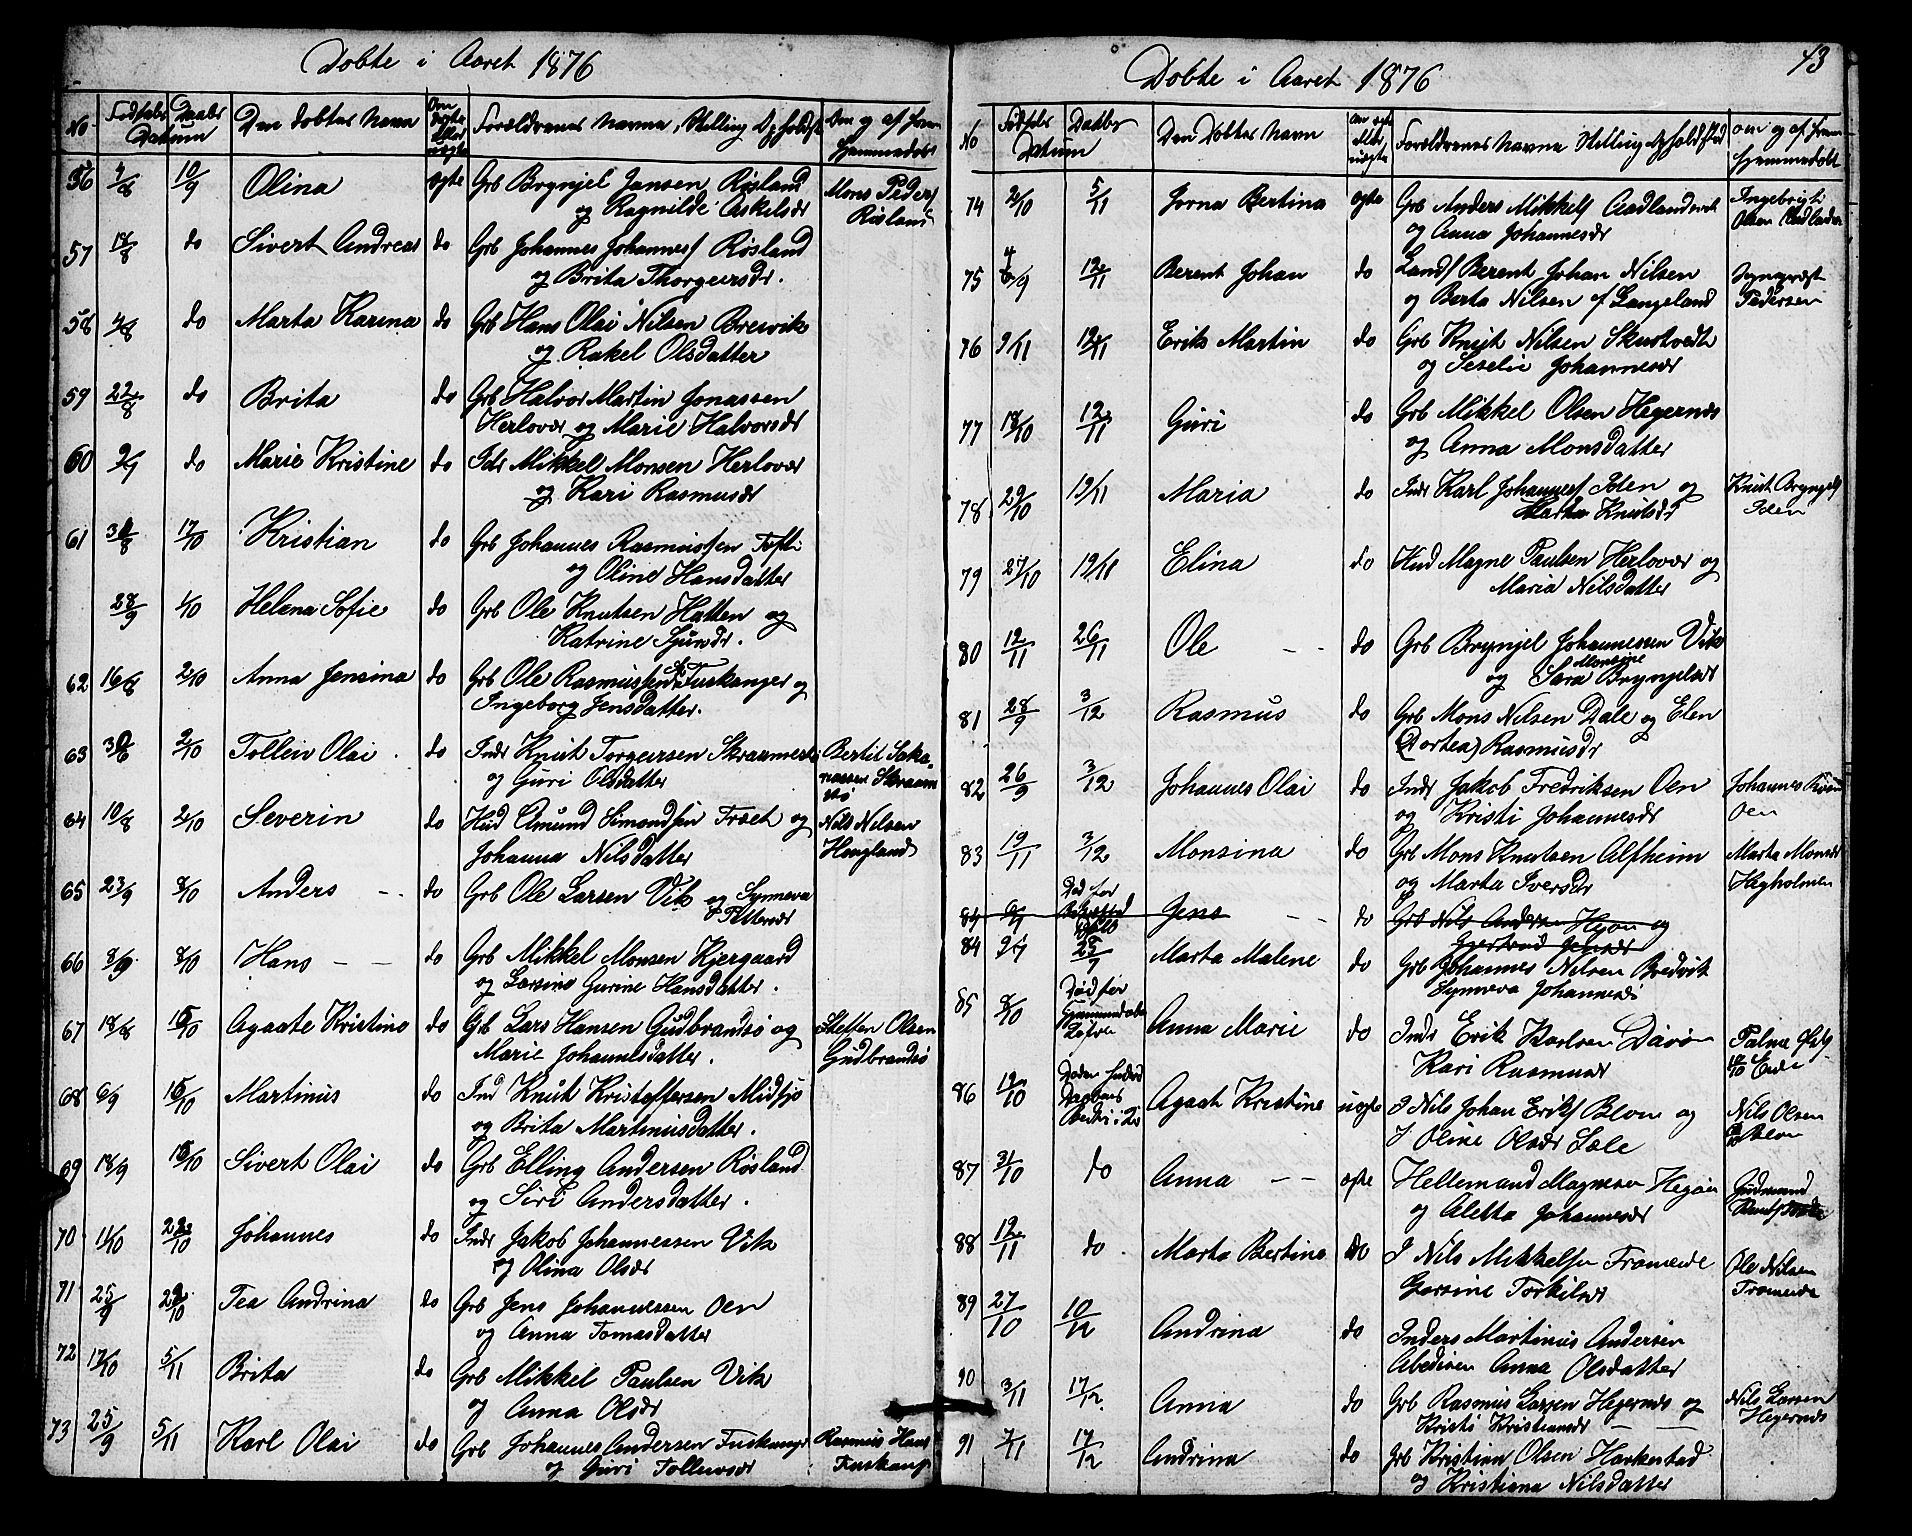 Døbte i Aaret 1876
No Fødsels Daabs Datum Den døbtes Navn Om ægte eller uægte Forældrenes Navne, Stilling Om og af hvem hjemmedøbt
56 10/9 Olina ægte Grb Brynjel Jansen Røsland Mons Peders
og Ragnilde Askelsdr Røsland
57 18/8 do Sivert Andreas do Grb Johannes Johannes Røsland
og Brita Thorgersdr.
58 4/8 do Marta Karina do Grb Hans Olai Nilsen Breivik
og Rakel Olsdatter
59 22/8 do Brita do Grb Halvor Martin Jonassen
Herlovær og Marie Halvorsdr
60 do Marie Kristine do Indr Mikkel Monsen Herlovær
og Kari Rasmusdr
61 30/8 Kristian do Grb Johannes Rasmussen Tofte
og Oline Hansdatter
28/9 1/10 Helena Sofie do Grb Ole Knutsen Hatten og
Katrine Sjursdr.
62 16/8 2/10 Anna Jensina do Grb Ole Rasmussen Fuskanger og
Ingeborg Jensdatter.
63 2/10 Tolleiv Olai do Indr Knut Torgersen Bertil Saka-
og Guri Olsdatter
64 10/8 2/10 Severin do Hud Amund Simondsen Træet og Nils Nilsen
Johanna Nilsdatter Haugland
65 23/9 8/10 Anders do Grb Ole Larsen Vik og Synneva
66 8/9 8/10 Hans do Grb Mikkel Monsen Kjergaard
og Larsine Gurine Hansdatter.
67 18/8 15/10 Agaate Kristine do Grb Lars Hansen Gudbrandsø og Steffen Olsen
Marie Johannesdatter. Gudbrandsø
68 6/9 15/10 Martinus do Ind Knut Kristoffersen Midsjø
og Brita Martinusdatter.
69 18/9 15/10 Sivert Olai do Grb Elling Andersen Røsland
og Siri Andersdatter.
70 11/10 22/10 Johannes do Indr Jakob Johannessen Vik
og Olina Olsdr
71 25/9 22/10 Tea Andrina do Grb Jens Johannessen Oen
og Anna Tomasdatter
72 17/10 5/11 Brita do Grb Mikkel Paulsen Vik
og Anna Olsdr
73 25/9 5/11 Karl Olai do Grb Johannes Andersen Fuskanger Rasmus Hans
og Guri Tolleivsdr Fuskang
43
Døbte i Aaret 1876
No Fødsels Daabs Datum Den Døbtes Navn Om ægte eller uægte Forældrenes Navne Stilling og Opholdssted om og af hvem hjemmedøbt
74 2/10 5/11 Jorna Bertina ægte Grb Anders Mikkels Aadlandsvik Ingebrigt
og Anna Johannesdr Olsen
75 12/11 Berent Johan do Lands Berent Johan Nilsen
og Berta Nilsen af Langeland Pedersen
76 9/11 12/11 Erik Martin do Grb Knut Nilsen Skustvedt
og Seselie Johannesdr
77 18/10 12/11 Guri do Grb Mikkel Olsen Hegernæs
og Anna Monsdatter
78 29/10 19/11 Maria do Indr Karl Johannes Iden og Knut Brynjels
Marta Knutsdr Iden
79 27/10 19/11 Elina do Hud Magne Paulsen Herlovær og
Maria Nilsdatter
80 12/11 26/11 Ole do Grb Brynjel Johannessen Vik
og Sara Monsine Brynjelsdr
81 28/9 3/12 Rasmus do Grb Mons Nilsen Dale og Elen
(Dortea) Rasmusdr
82 26/9 3/12 Johannes Olai do Indr Jakob Fredriksen Oen Johannes
og Kristi Johannesdr Oen
83 19/11 3/12 Monsina do Grb Mons Knutsen Alfheim Marta Monsdr
og Marta Iversdr Hegholmen
84 Død før Jens do Grb Nils Andersen og
Gjertrud Jensdr
84 Marta Malene do Grb Johannes Nilsen Bredvik
Synneva Johannesdr
85 8/10 Død før Hjemmedaaben Anna Marie do Indr Erik Karlsen Davøn
Kari Rasmusdr
86 19/10 Agaat Kristine uægte I Nils Johan Eriks Blom og Nils Olsen
I Oline Olsdr Blom
87 31/10 do Anna ægte Hellemand Magnesen Hegøen Gudmund
og Aletta Johannesdr
88 12/11 do Marta Bertine do I Nils Mikkelsen Tromeide Ole Nilsen
Gorsine Torkilsdr Tromeide
89 27/10 10/12 Andrina do Inders Martinus Andersen
Anna Olsdatter
90 3/11 17/12 Anna do Grb Rasmus Larsen Hegernæs og Nils Larsen
Kristi Kristiansdr Hegernæs
91 7/11 17/12 Andrina do Grb Kristian Olsen Harkestad
og Kristiana Nilsdatter